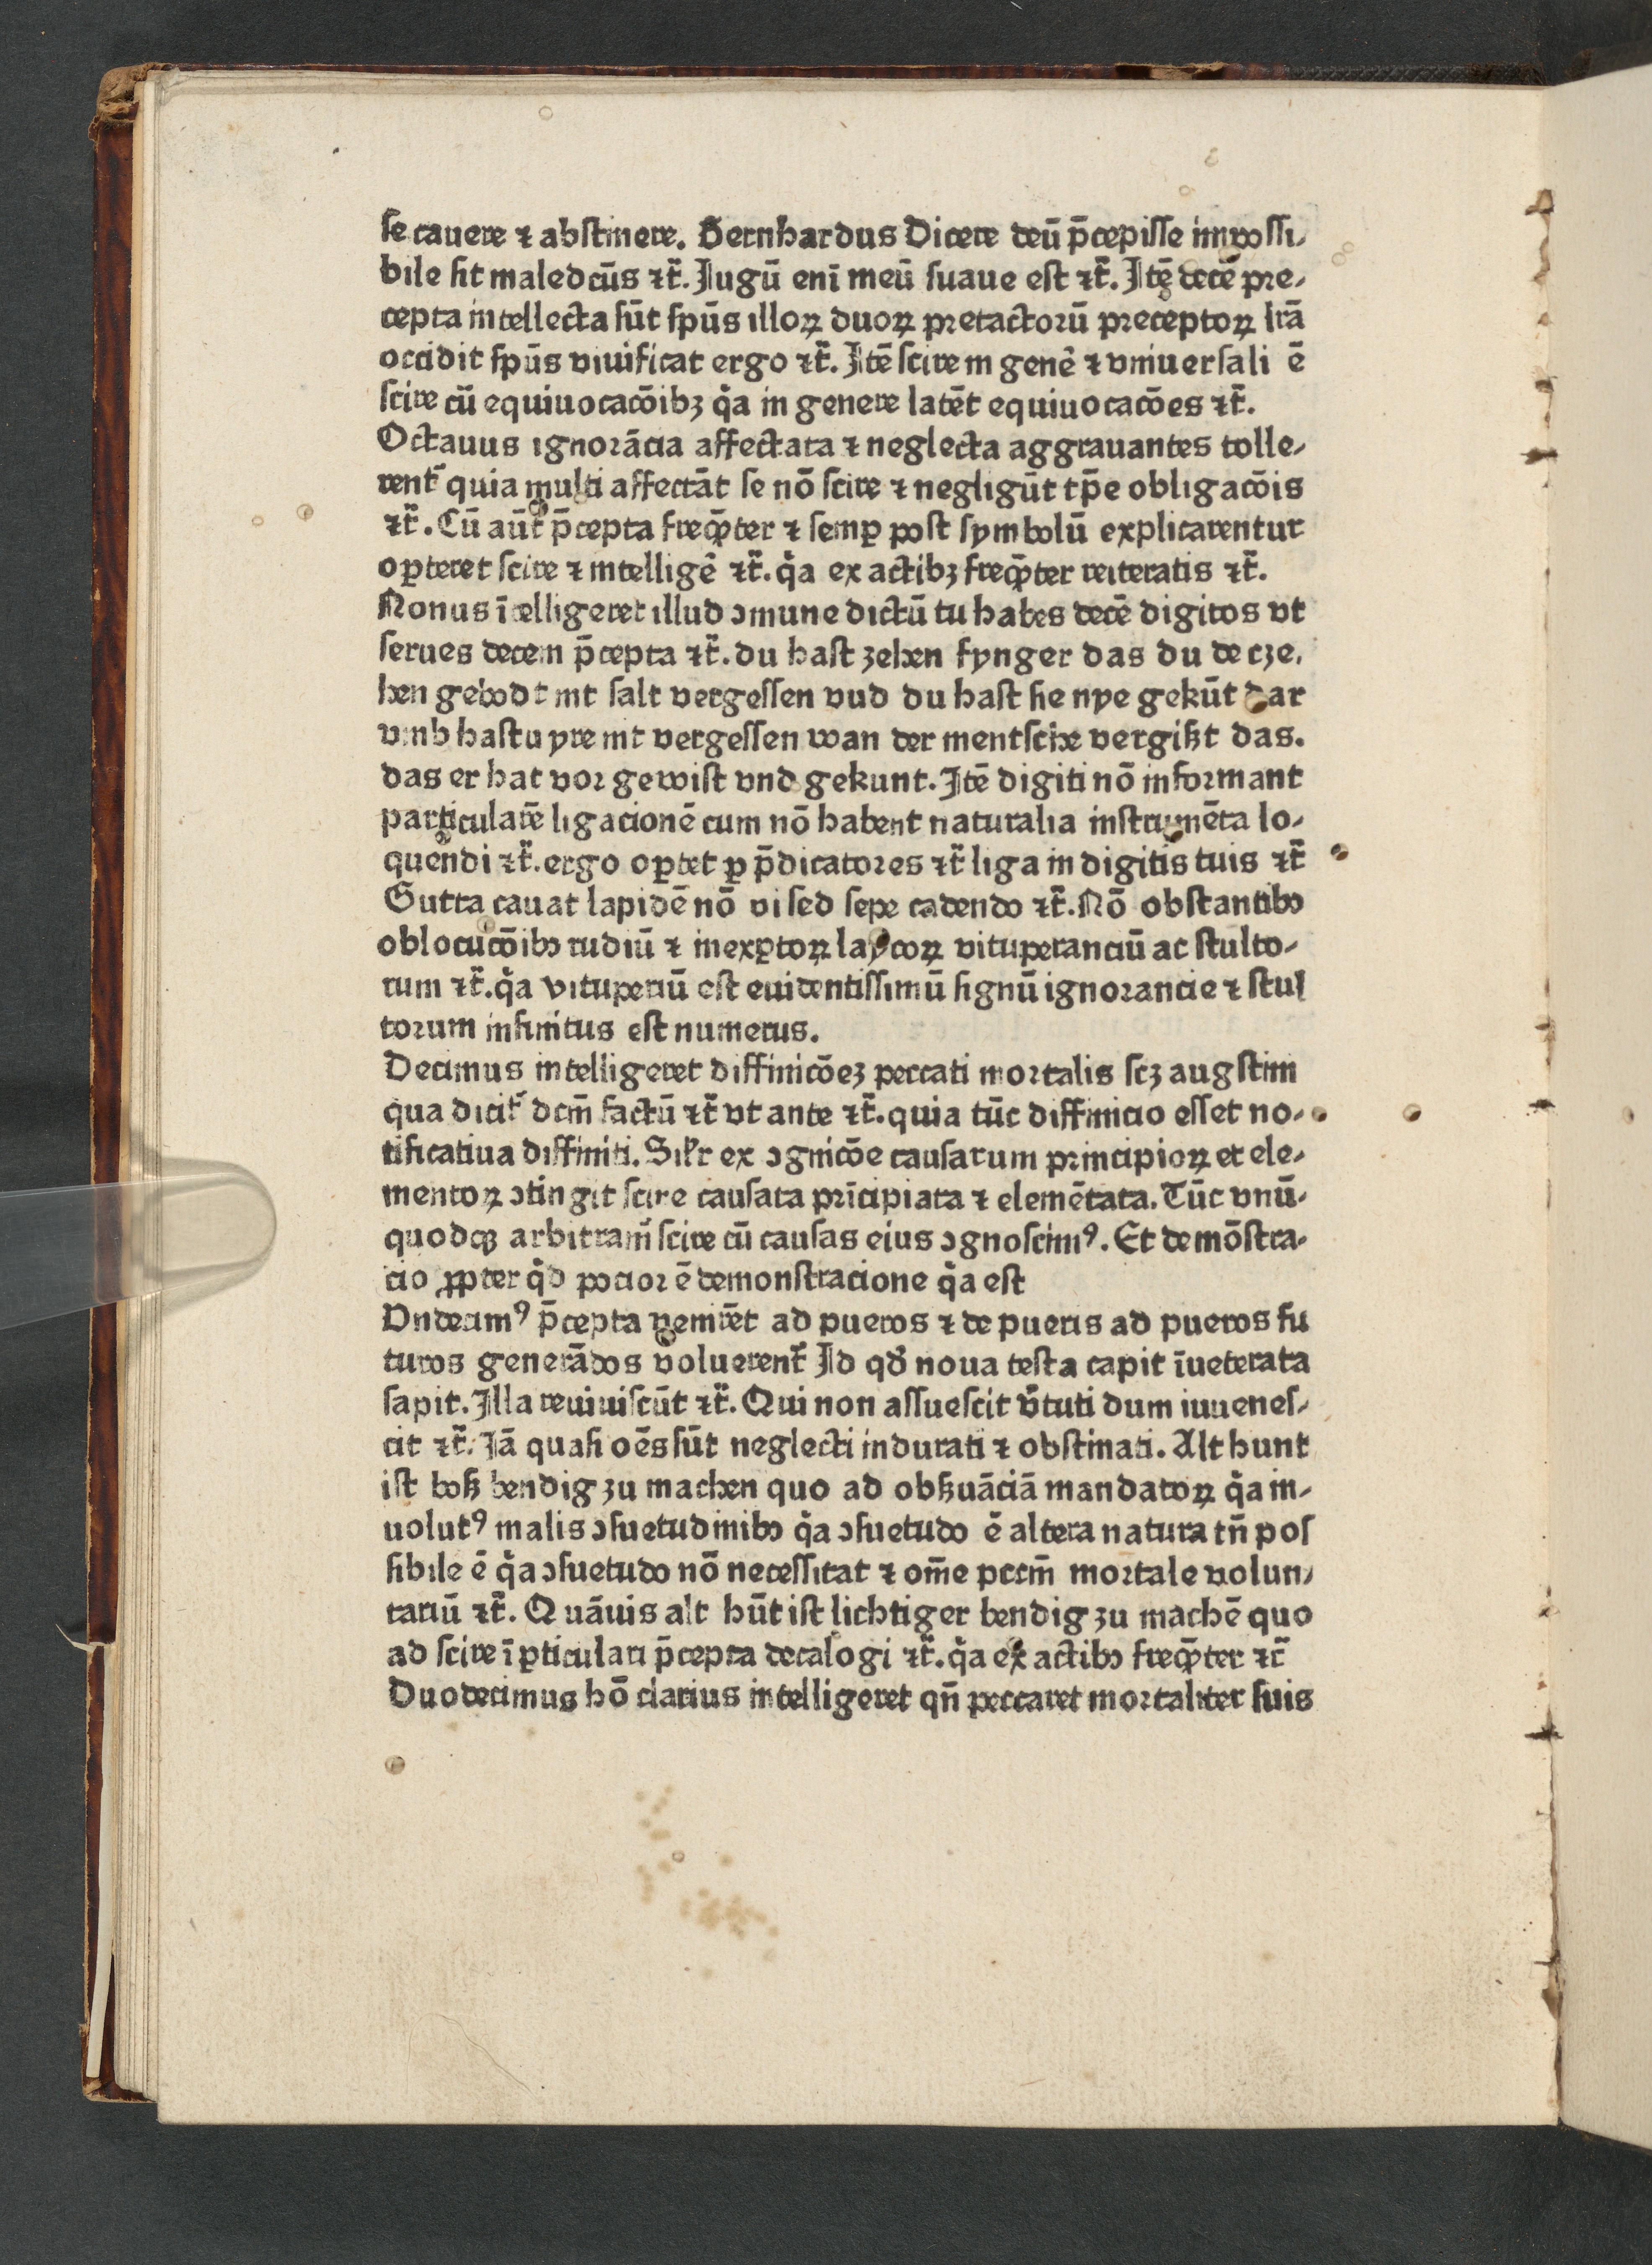 se cauere ⁊ abstinere. Bernhardus Dicere deū p̄cepisse impossi⸗
bile sit maledcūs ⁊c̄. Jugū enī meū suaue est ⁊c̄. Jtē decē pre⸗
cepta intellecta sūt spūs illoꝝ duoꝝ pretactorū preceptoꝝ lrā
occidit spūs viuificat ergo ⁊c̄. Jtē scire in genē ⁊ vniuersali ē
scire cū equiuocacōibꝫ q̇a in genere latēt equiuocacōes ⁊c̄.
Octauus ignorācia affectata ⁊ neglecta aggrauantes tolle⸗
rent᷑ quia multi affectāt se nō scire ⁊ negligūt tp̄e obligacōis
⁊c̄. Cū aūt p̄cepta freq̄ꝫter ⁊ semꝑ post symbolū explicarentur
oꝑteret scire ⁊ intelligē ⁊c̄. q̇a ex actibꝫ freq̄ꝫter reiteratis ⁊c̄.
Nonus ītelligeret illud ꝯmune dictū tu habes decē digitos vt
serues decem p̄cepta ⁊c̄. du hast zehen fynger das du de cze⸗
hen gebodt nit salt vergessen vud du hast sie nye gekūt dar
vmb hastu yre nit vergessen wan der mentsche vergißt das.
das er hat vor gewist vnd gekunt. Jtē digiti nō informant
particularē ligacionē cum nō habent naturalia instrumēta lo⸗
quendi ⁊c̄. ergo oꝑtet ꝑ p̄dicatores ⁊c̄ liga in digitis tuis ⁊c̄
Gutta cauat lapidē nō vi sed sepe cadendo ⁊c̄. Nō obstantibꝰ
oblocucōibꝰ rudiū ⁊ inexꝑtoꝝ laycoꝝ vituperanciū ac stulto⸗
rum ⁊c̄. q̇a vituperiū est euidentissimū signū ignorancie ⁊ stul
torum infinitus est numerus.
Decimus intelligeret diffinicōeꝫ peccati mortalis scꝫ augstini
qua dicit᷑ dcm̄ factū ⁊c̄ vt ante ⁊c̄. quia tūc diffinicio esset no⸗
tificatiua diffiniti. Silr̄ ex ꝯgnicōe causarum principioꝝ et ele⸗
mentoꝝ ꝯtingit scire causata prīcipiata ⁊ elemētata. Tūc vnū⸗
quodqꝫ arbitram᷑ scire cū causas eius ꝯgnoscimꝰ. Et demōstra⸗
cio ꝓpter q̇d pocior ē demonstracione q̇a est
Vndecimꝰ p̄cepta venirēt ad pueros ⁊ de pueris ad pueros fu
turos generādos voluerent᷑ Jd qd̕ noua testa capit īueterata
sapit. Jlla reuiuiscūt ⁊c̄. Qui non assuescit v̕tuti dum iuuenes⸗
cit ⁊c̄. Jā quasi oēs sūt neglecti indurati ⁊ obstinati. Alt hunt
ist boß bendig zu machen quo ad obßuāciā mandatoꝝ q̇a in⸗
uolutꝰ malis ꝯsuetudinibꝰ q̇a ꝯsuetudo ē altera natura tn̄ pos
sibile ē q̇a ꝯsuetudo nō necessitat ⁊ om̄e pccm̄ mortale volun⸗
tariū ⁊c̄. Quāuis alt hūt ist lichtiger bendig zu machē quo
ad scire ī ꝑticulari p̄cepta decalogi ⁊c̄. q̇a ex actibꝰ freq̄ꝫter ⁊c̄
Duodecimus hō clarius intelligeret qn̄ peccaret mortaliter suis